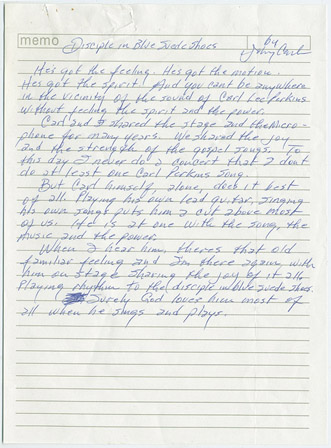 memo
Disciple in Blue Suede Shoes
by
Johnny Cash
He's got the feeling. He's got the motion.
He's got the spirit! And you cant be anywhere
in the vicinity of the sound of Carl Lee Perkins
without feeling the spirit and the power.
Carl and I shared the stage and the Micro-
phone for many years. We shared the joy
and the strength of the gospel songs. To
this day I never do a concert that I don't
do at least one Carl Perkins song.
But Carl himself, alone, does it best
of all. Playing his own lead guitar, singing
his own songs puts him a cut above most
of us. He is at one with the song, the
music and the power.
When I hear him, theres that old
familiar feeling and I'm there again, with
him on stage sharing the joy of it all.
Playing rhythm to the disciple in blue suede shoes.
Surely God loves him most of
all when he sings and plays.